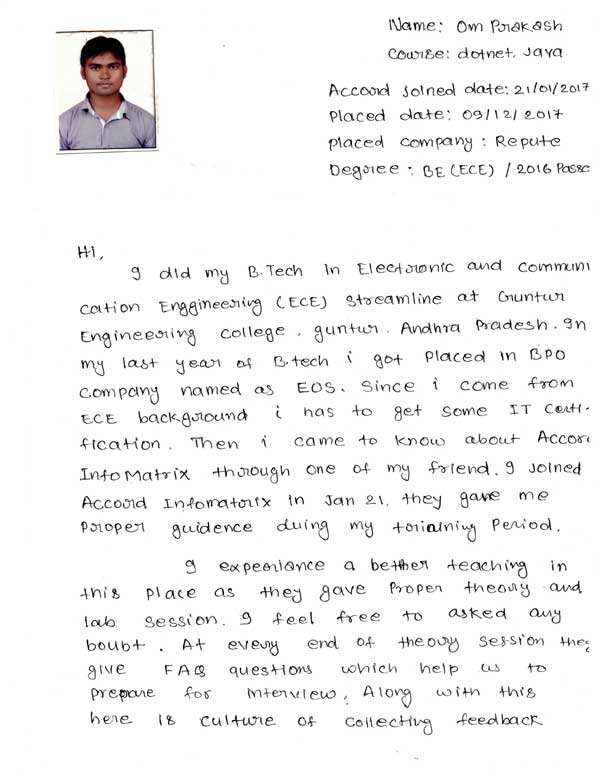 Name: Om Prakash
Course: dotnet, Java
Accord Joined date: 21/01/2017
Placed date: 09/12/2017
placed company: Repute
Degree: BE (ECE) / 2016 Passo
Hi,
I did my B.Tech In Electronic and communi
cation Enggineering (ECE) streamline at Guntur
Engineering college, guntur, Andhra Pradesh. In
my last year of B.tech i got placed in BPO
company named as EOS. Since i come from
ECE background i has to get some IT Certi-
fication. Then i came to know about Accor
InfoMatrix through one of my friend. I Joined
Accord Infomatrix in Jan 21. they gave me
proper guidence duing my toriaining Period.
I experiance a bether teaching in
this place as they gave Proper theory and
lab session. I feel free to asked any
boubt. At every end of theory session they
give FAQ questions which help us to
prepare for Interview. Along with this
here is culture of collecting feedback